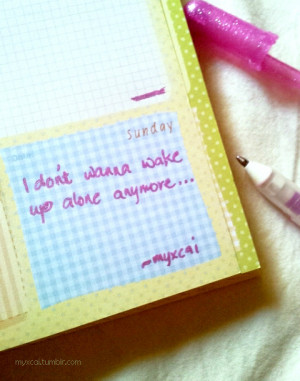 sunday
I don't wanna wake
up alone anymore...
~myxcai
myxcai.tumblr.com